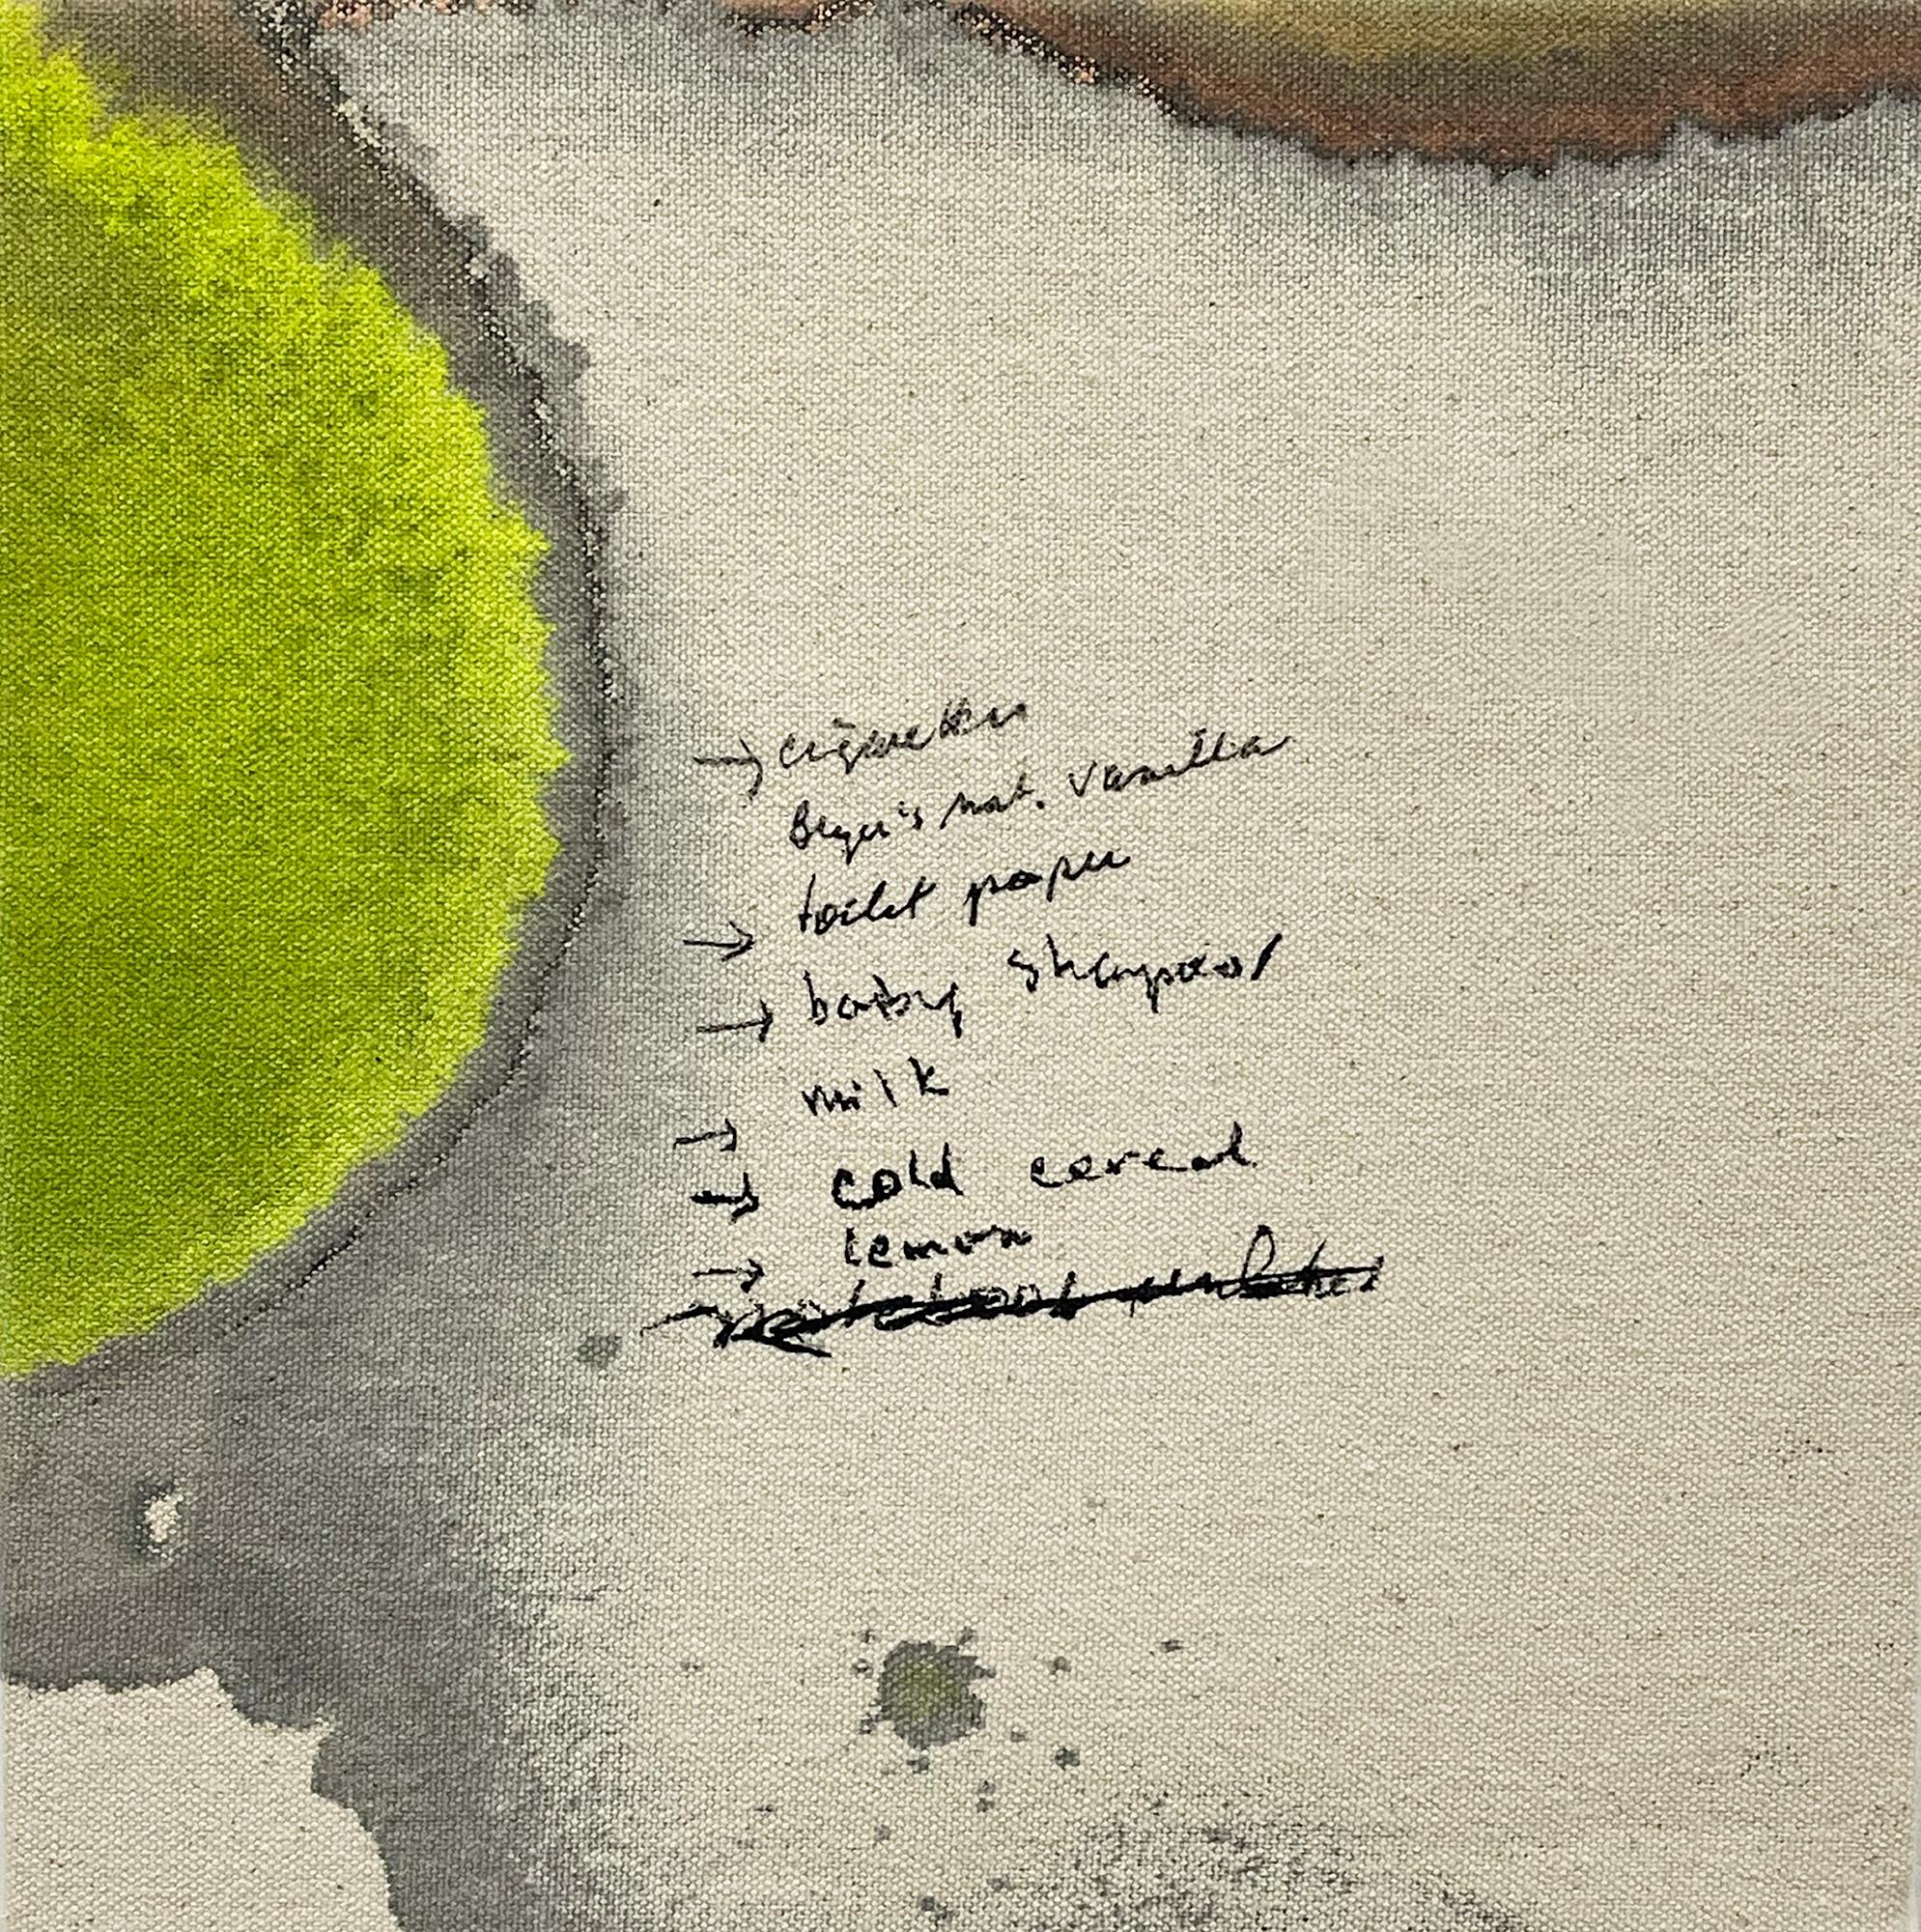 → cigarettes
Breyer's nat. vanilla
→ toilet paper
→ baby shampoo
→ milk
→ cold cereal
→ lemon
notebook